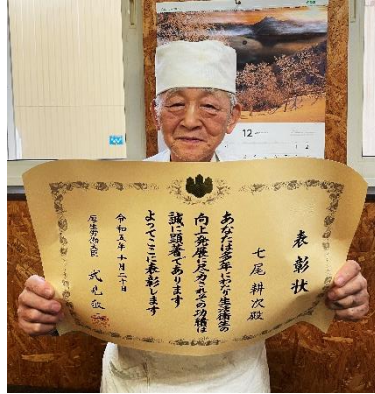 表彰状
七尾耕次殿
あなたは多年にわたり生活衛生の
向上発展に尽力されその功績は
誠に顕著であります
よってここに表彰します
令和五年十月二十日
厚生労働大臣 武見敬三
12